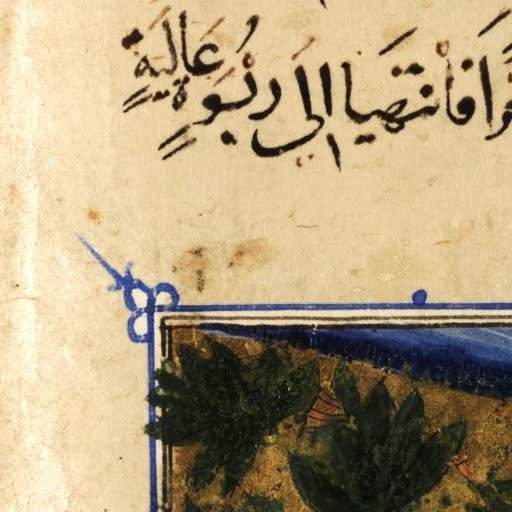 فَانْتَهَيا الَى رَبْوَةٍ عَالِيَةٍ